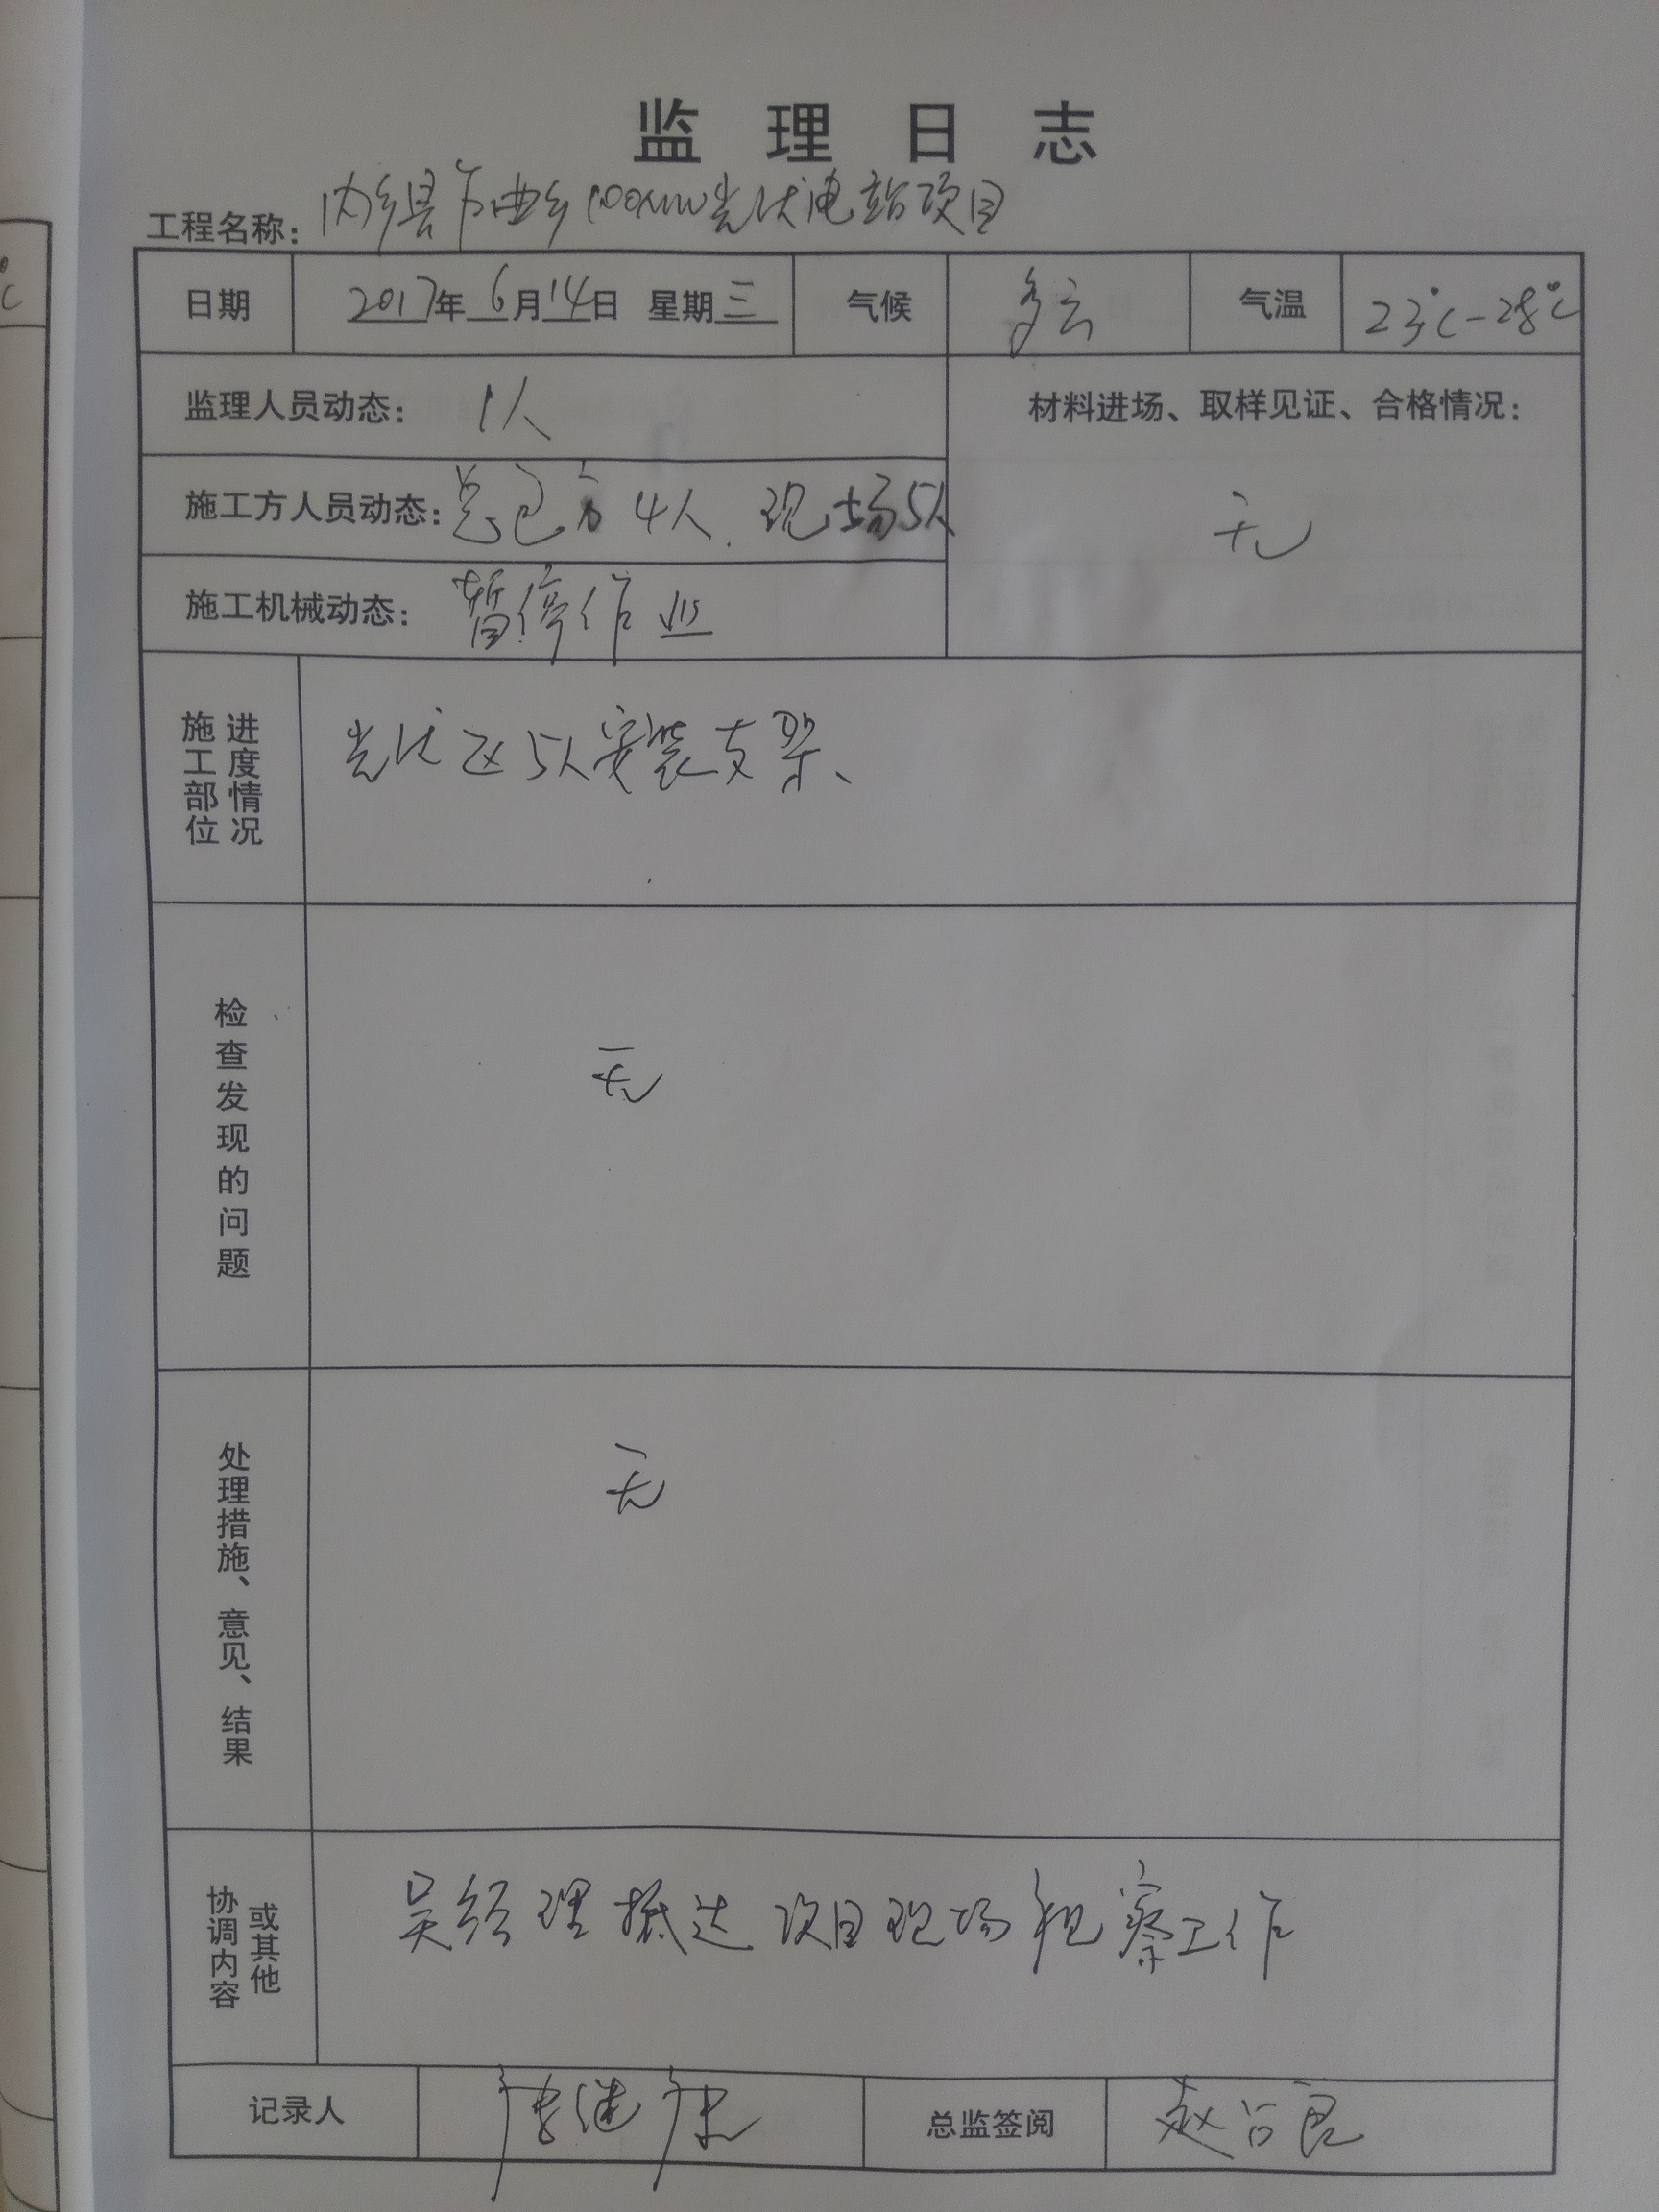 监理日志
工程名称：内乡县乍曲乡100MW光伏电站项目
日期 2017年6月14日 星期三 气候 多云 气温 23℃-28℃
监理人员动态：1人
材料进场、取样见证、合格情况：
无
施工方人员动态：总包方4人．现场5人
施工机械动态：暂停作业
施工部位进度情况
光伏区5人安装支架、
检查发现的问题
无
处理措施、意见、结果
无
协调内容或其他
吴经理抵达项目现场视察工作
记录人 总监签阅
℃